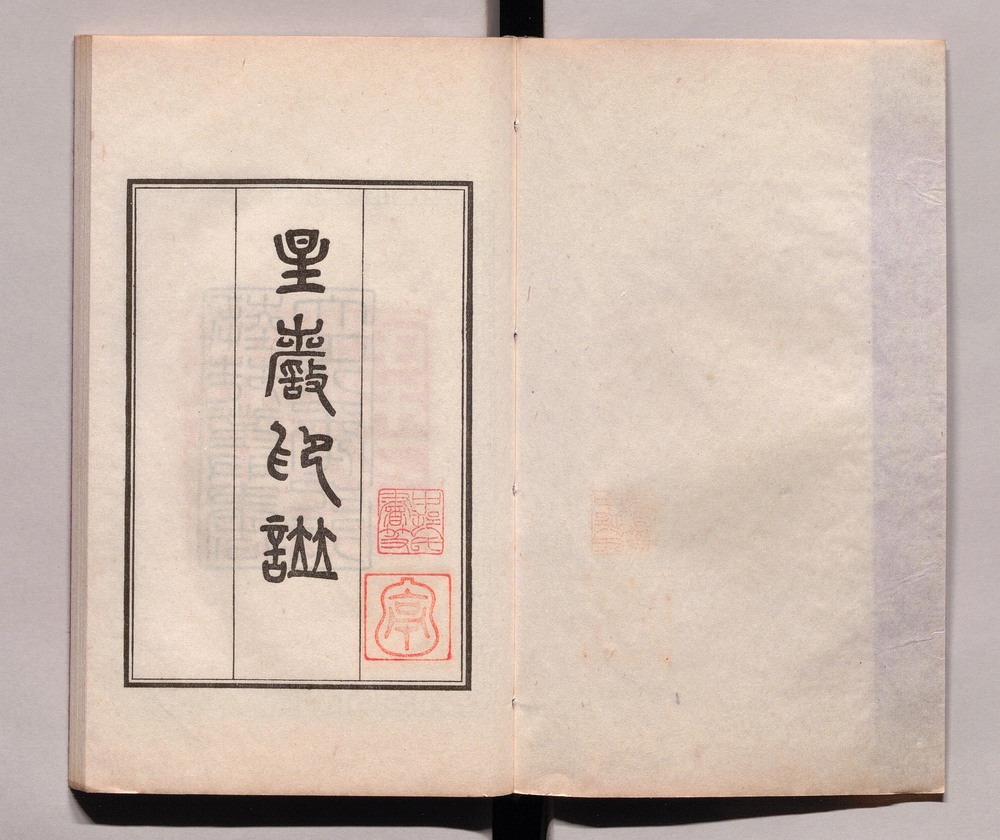 星巖印譜
亭